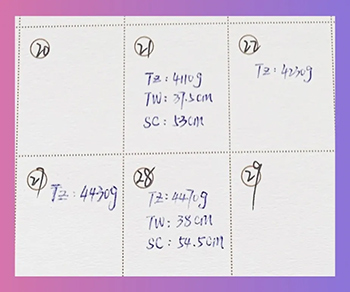 20
21
TZ: 4110g
TW: 37.5cm
SC: 53cm
22
TZ: 4230g
27
TZ: 4430g
28
TZ: 4470g
TW: 38cm
SC: 54.5cm
29